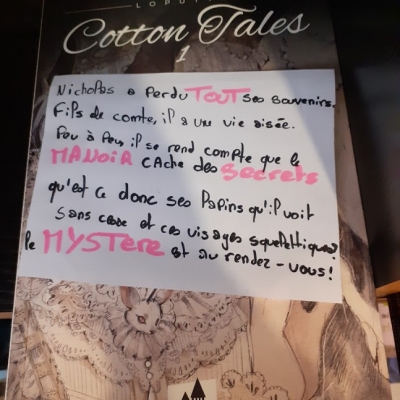 LOPUT
Cotton Tales
1
Nicholas a perdu TOUT ses souvenirs.
Fils de comte, il a une vie aisée.
Peu à peu, il se rend compte que le
MANOIR cache des secrets
qu'est ce donc ses lapins qu'il voit
sans cesse et ces visages squelettiques?
le MYSTERE est au rendez-vous!